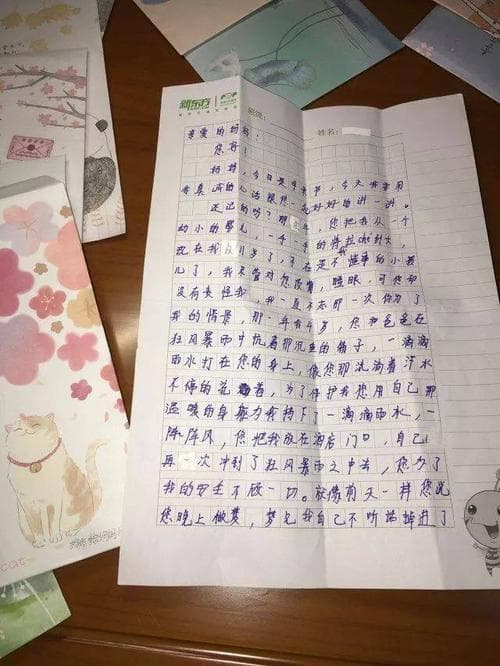 新东方
班级:
姓名:
亲爱的妈妈:
您好!
妈妈,今日是母亲节,今天我要用
我的心里话跟您好好地讲一讲。
还记的吗?那,您把我从一个
幼小的婴儿,一年一年的将我拉到大,
现在我几岁了,不在是不懂事的小孩
儿了,我尽管对您发,瞪眼,可您却
没有责怪我,我一直不忘那一次您为了
我的情景,那一年我4岁,您和爸爸在
狂风暴雨中扛着那沉重的箱子,一滴滴
雨水打在您的身上,像您那流淌着汗水
不停的花着,为了保护我您用自己那
温暖的身躯力我挡下了一滴滴雨水,一
阵阵风,您把我放在酒店门口,自己
再一次冲到了狂风暴雨之中去,您为了
我的安全不顾一切。就像前天一样您说
您晚上做梦,梦见我自己不听话掉进了
cat